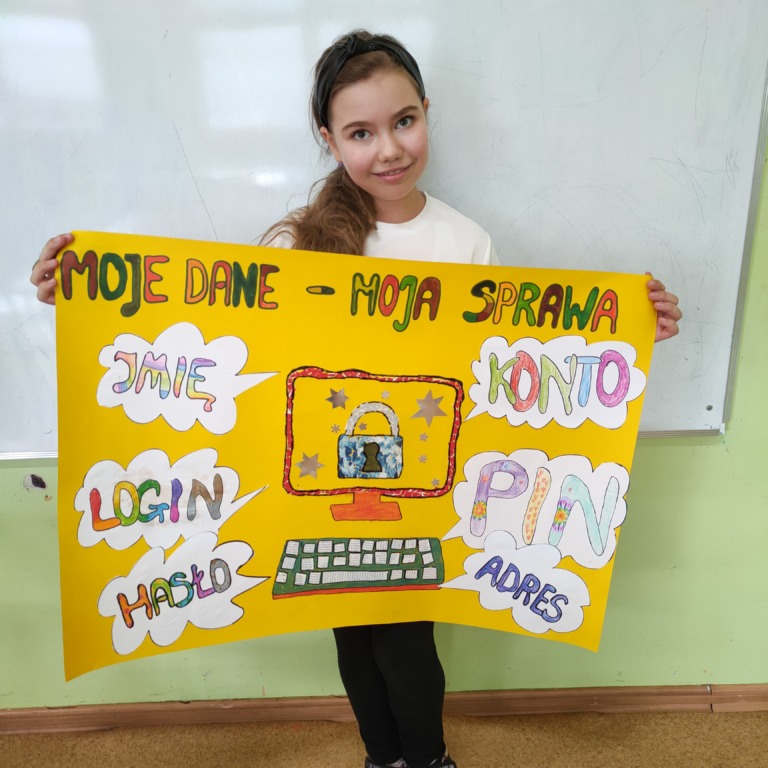 MOJE DANE - MOJA SPRAWA
JMIĘ
KONTO
LOGIN
PIN
HASŁO
ADRES